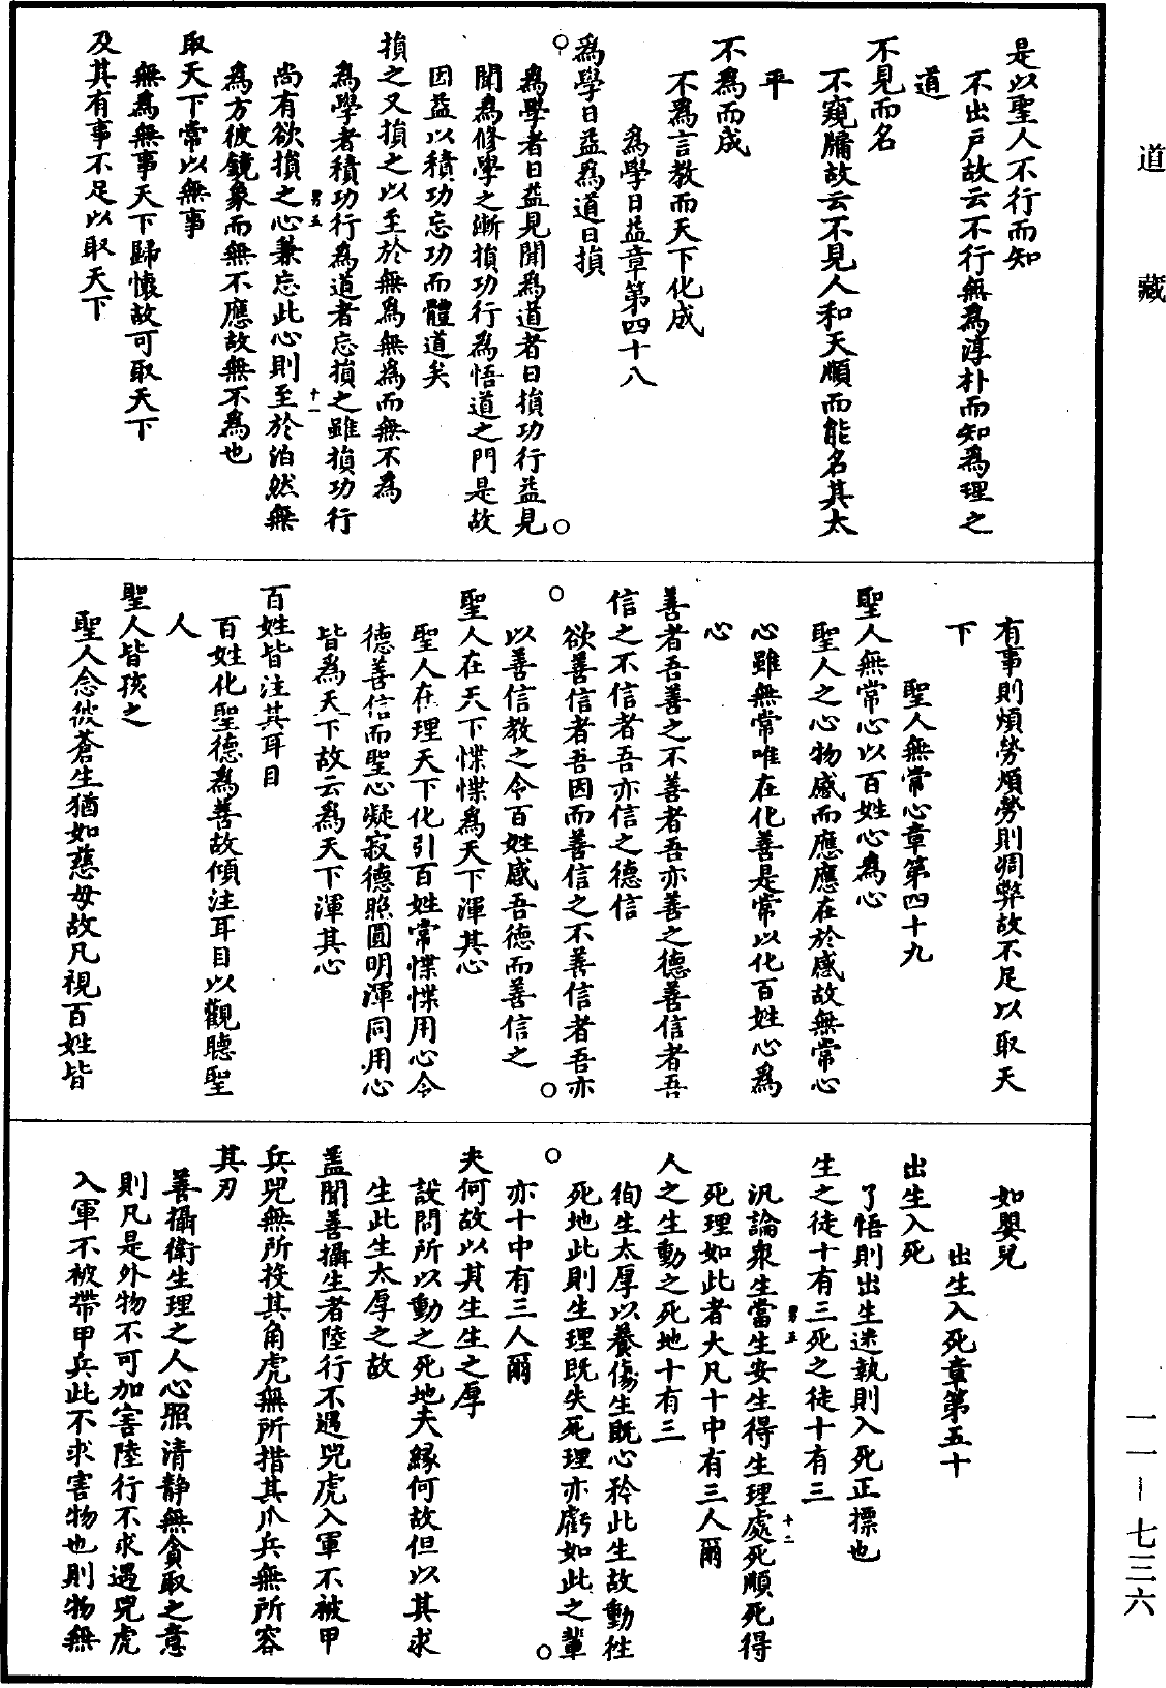 道藏
是以聖人不行而知
不出戶故云不行無為淳朴而知為理之
道
不見而名
不窺牖故云不見人和天順而能名其太
平
不為而成
不為言教而天下化成
為學日益章第四十八
為學日益為道日損
為學者日益見聞為道者日損功行益見
聞為修學之漸損功行為悟道之門是故
因益以積功忘功而體道矣
損之又損之以至於無為無為而無不為
為學者積功行為道者忘損之雖損功行
男五
十一
尚有欲損之心兼忘此心則至於泊然無
為方彼鏡象而無不應故無不為也
取天下常以無事
無為無事天下歸懷故可取天下
及其有事不足以取天下
有事則煩勞煩勞則凋弊故不足以取天
下
聖人無常心章第四十九
聖人無常心以百姓心為心
聖人之心物感而應應在於感故無常心
心雖無常唯在化善是常以化百姓心為
心
善者吾善之不善者吾亦善之德善信者吾
信之不信者吾亦信之德信
欲善信者吾因而善信之不善信者吾亦
以善信教之令百姓感吾德而善信之
聖人在天下惵惵為天下渾其心
聖人在理天下化引百姓常惵惵用心令
德善信而聖心凝寂德照圓明渾同用心
皆為天下故云為天下渾其心
百姓皆注其耳目
百姓化聖德為善故傾注耳目以觀聽聖
人
聖人皆孩之
聖人念彼蒼生猶如慈母故凡視百姓皆
如嬰兒
出生入死章第五十
出生入死
了悟則出生迷執則入死正標也
生之徒十有三死之徒十有三
汎論衆生當生安生得生理處死順死得
男五
十二
死理如此者大凡十中有三人爾
人之生動之死地十有三
徇生太厚以養傷生既心矜此生故動往
死地此則生理既失死理亦虧如此之輩
亦十中有三人爾
夫何故以其生生之厚
設問所以動之死地夫緣何故但以其求
生此生太厚之故
蓋聞善攝生者陸行不遇兕虎入軍不被甲
兵兕無所投其角虎無所措其爪兵無所容
其刃
善攝衛生理之人心照清靜無貪取之意
則凡是外物不可加害陸行不求遇兕虎
入軍不被帶甲兵此不求害物也則物無
一一-七三六